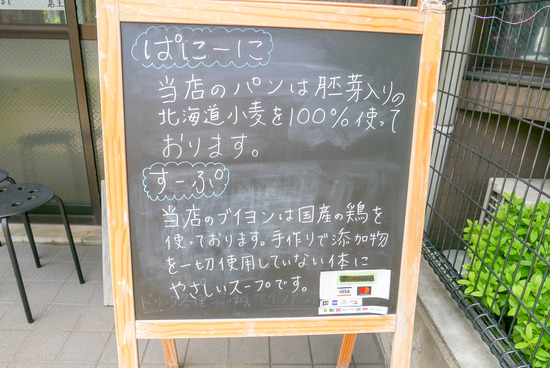 店主
ぱにーに
当店のパンは胚芽入りの
北海道小麦を100%使って
おります。
すーぷ
当店のブイヨンは国産の鶏を
使っております。手作りで添加物
を一切使用していない体に
やさしいスープです。
VISA